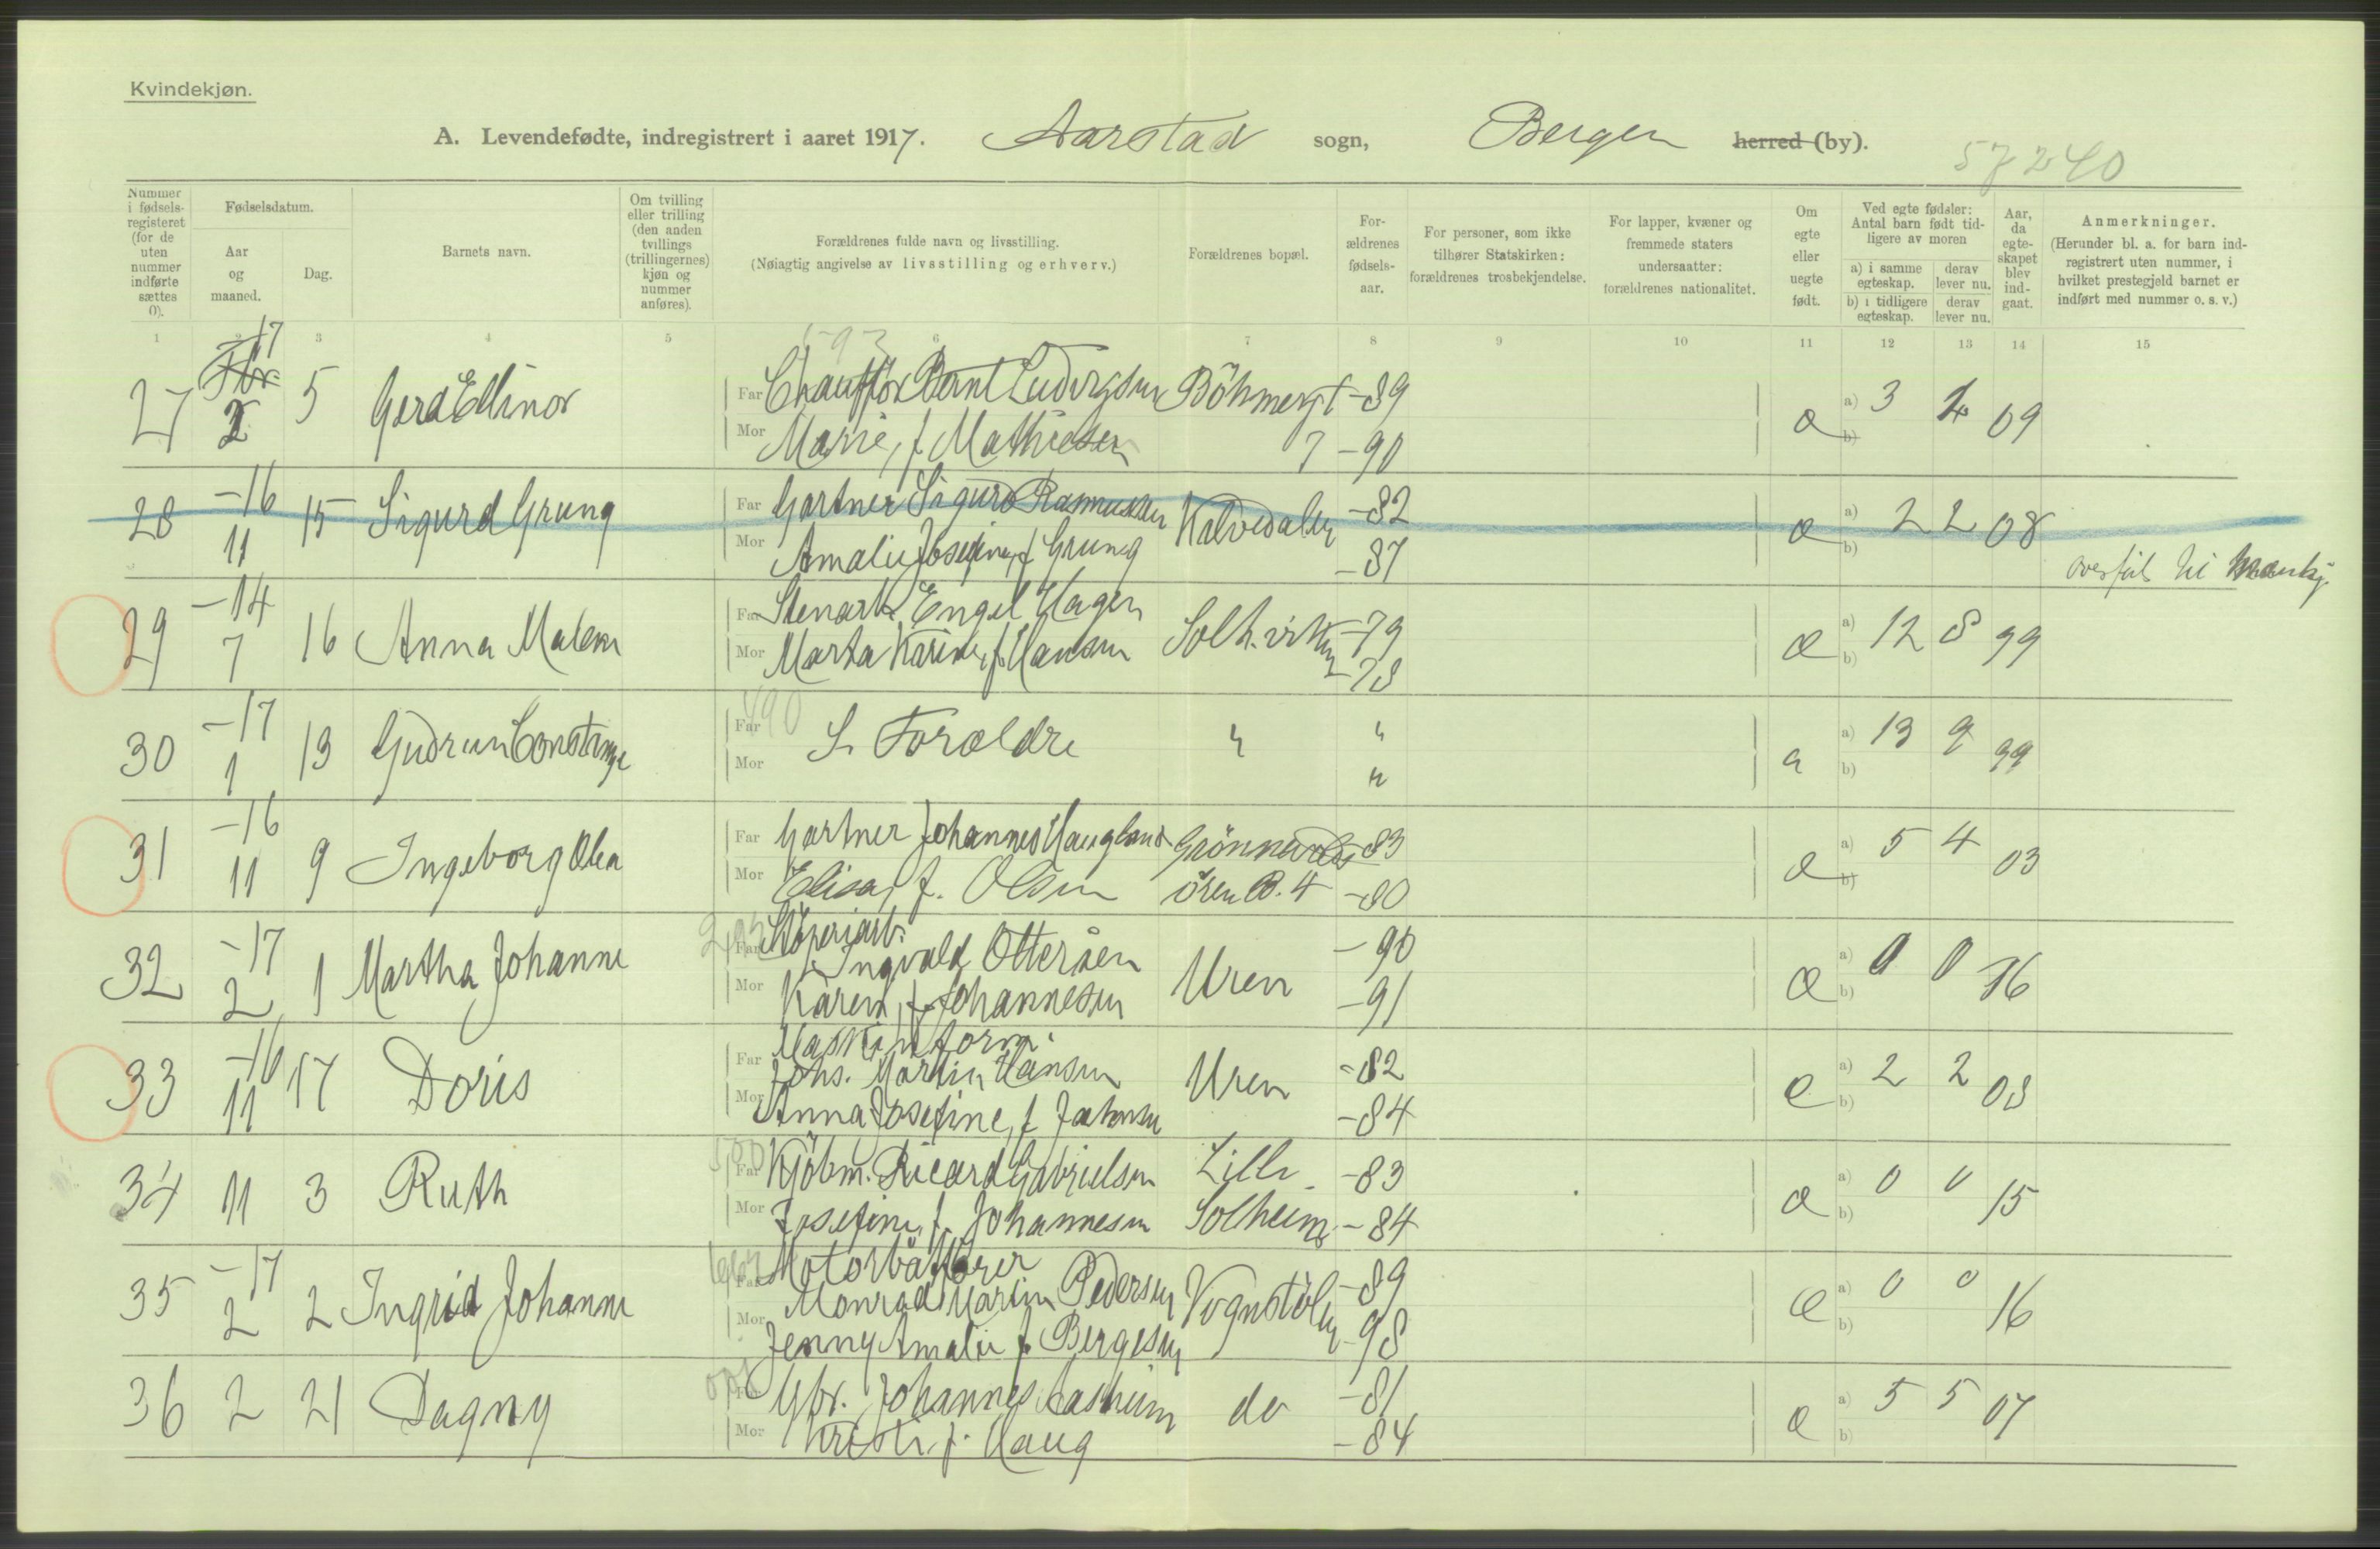 Kvindekjøn.
A. Levendefødte, indregistrert i aaret 1917. Aarstad sogn, Bergen herred (by).
57240
Nummer i fødsels-registeret (for de uten nummer indførte sættes 0).
Fødselsdatum.
Aar og maaned.
Dag.
Barnets navn.
Om tvilling eller trilling (den anden tvillings (trillingernes) kjøn og nummer anføres).
Forældrenes fulde navn og livsstilling.
(Nøiagtig angivelse av livsstilling og erhverv.)
Forældrenes bopæl.
For-ældrenes fødsels-aar.
For personer, som ikke tilhører Statskirken: forældrenes trosbekjendelse.
For lapper, kvæner og fremmede staters undersaatter: forældrenes nationalitet.
Om egte eller uegte født.
Ved egte fødsler: Antal barn født tid-ligere av moren
a) i samme egteskap. derav lever nu.
b) i tidligere egteskap. derav lever nu.
Aar, da egte-skapet blev ind-gaat.
Anmerkninger.
(Herunder bl. a. for barn ind-registrert uten nummer, i hvilket prestegjeld barnet er indført med nummer o. s. v.)
1 2 3 4 5 6 7 8 9 10 11 12 13 14 15
27 -17 2 5 Gerd Ellinor Far Chauffør Bernt Ludvigsen Böhmergt -89 a) 3 09
Mor Marie, f Mathiesen 7 -90 b)
28 -16 11 15 Sigurd Grung Far Gartner Sigurd Rasmussen Kalvedalen -82 a) 2 2 08
Mor Amalie Josefine, f Grung -87 b)
overført til mankj.
29 -14 7 16 Anna Malene Far Stenarb. Engel Hagen Solh.viken -79 a) 12 8 99
Mor Marta Karine, f. Hansen -78 b)
490
30 -17 1 13 Gudrun Constanse Far S. Foroldre " " a) 13 9 99
Mor " b)
31 -16 11 9 Ingeborg Olea Far Gartner Johannes Haugland Grönnevolds -83 a) 5 4 03
Mor Elisa, f. Olsen ören B. 4 -80 b)
32 -17 2 1 Martha Johanne Far Støperiarb. Ingvald Ottersen Uren -90 a) 0 0 16
Mor Karen, f. Johannesen -91 b)
33 -16 11 17 Doris Far Maskinform. Johs. Martin Hansen Uren -82 a) 2 2 08
Mor Anna Josefine, f -84 b)
500
34 11 3 Ruth Far Kjøbm. Ricard Gabrielsen Lille -83 a) 0 0 15
Mor Josefine, f. Johannesen Solheim -84 b)
35 -17 2 2 Ingrid Johanne Far Motorbåtfører Monrad Martin Pedersen Vognstölen -89 a) 0 0 16
Mor Jenny Amalie f. Bergesen -98 b)
36 2 21 Dagny Far Gbr. Johannes Aasheim do -81 a) 5 5 07
Mor Kristi f. Haug -84 b)